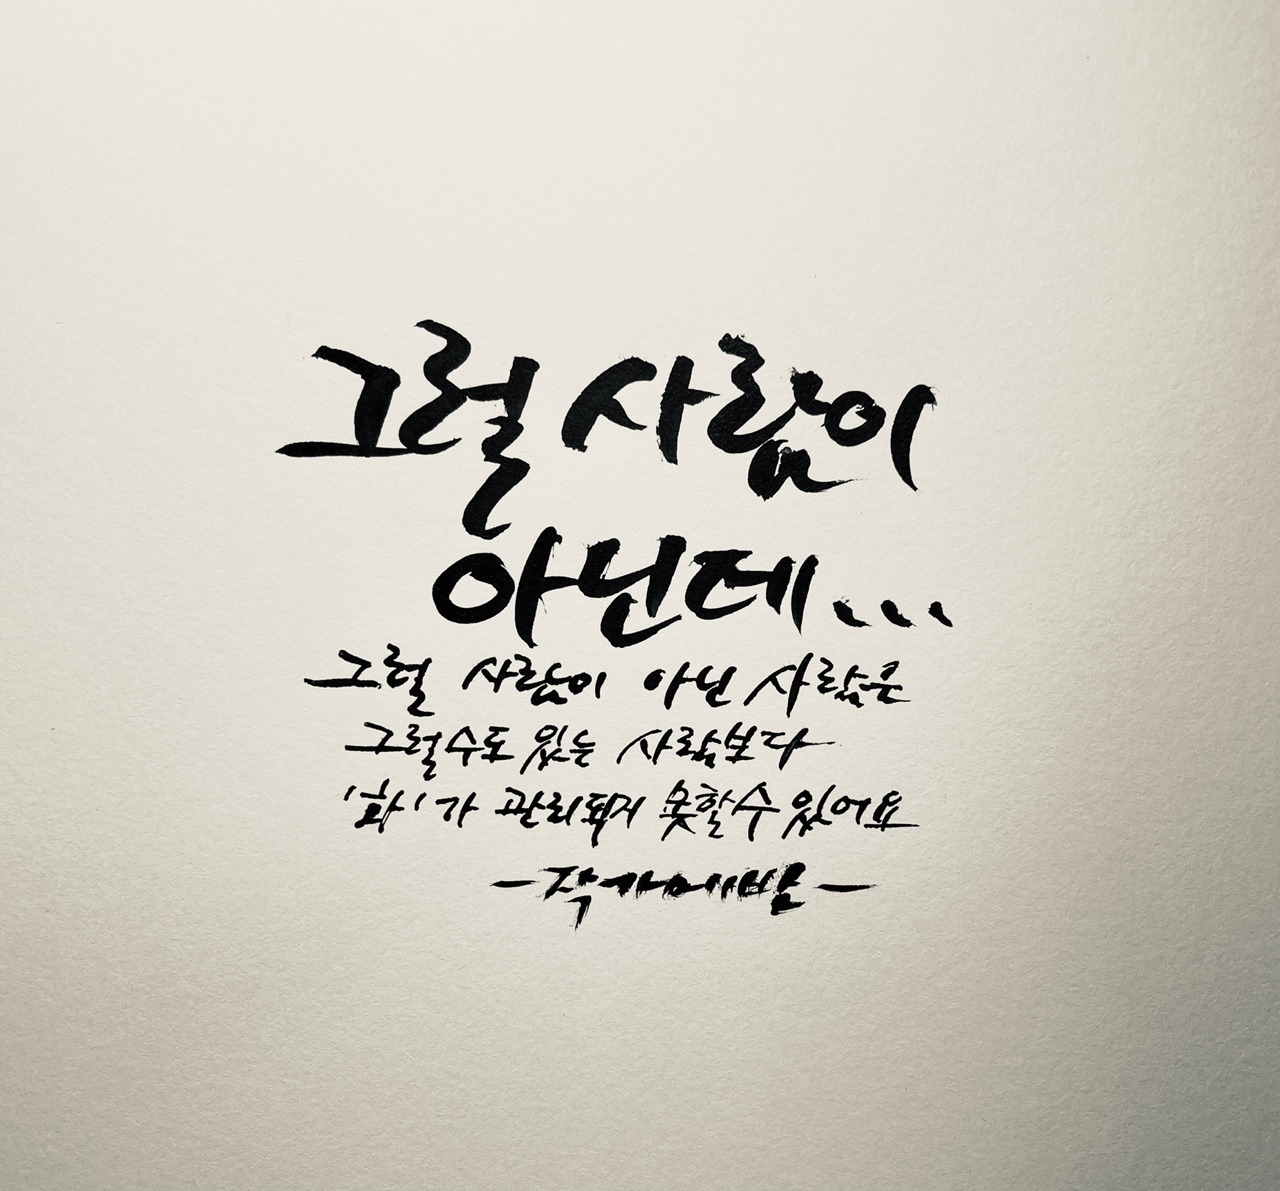 그럴 사람이
아닌데...
그럴 사람이 아닌 사람은
그럴수도 있는 사람보다
'화'가 관리되지 못할수 있어요
-작가